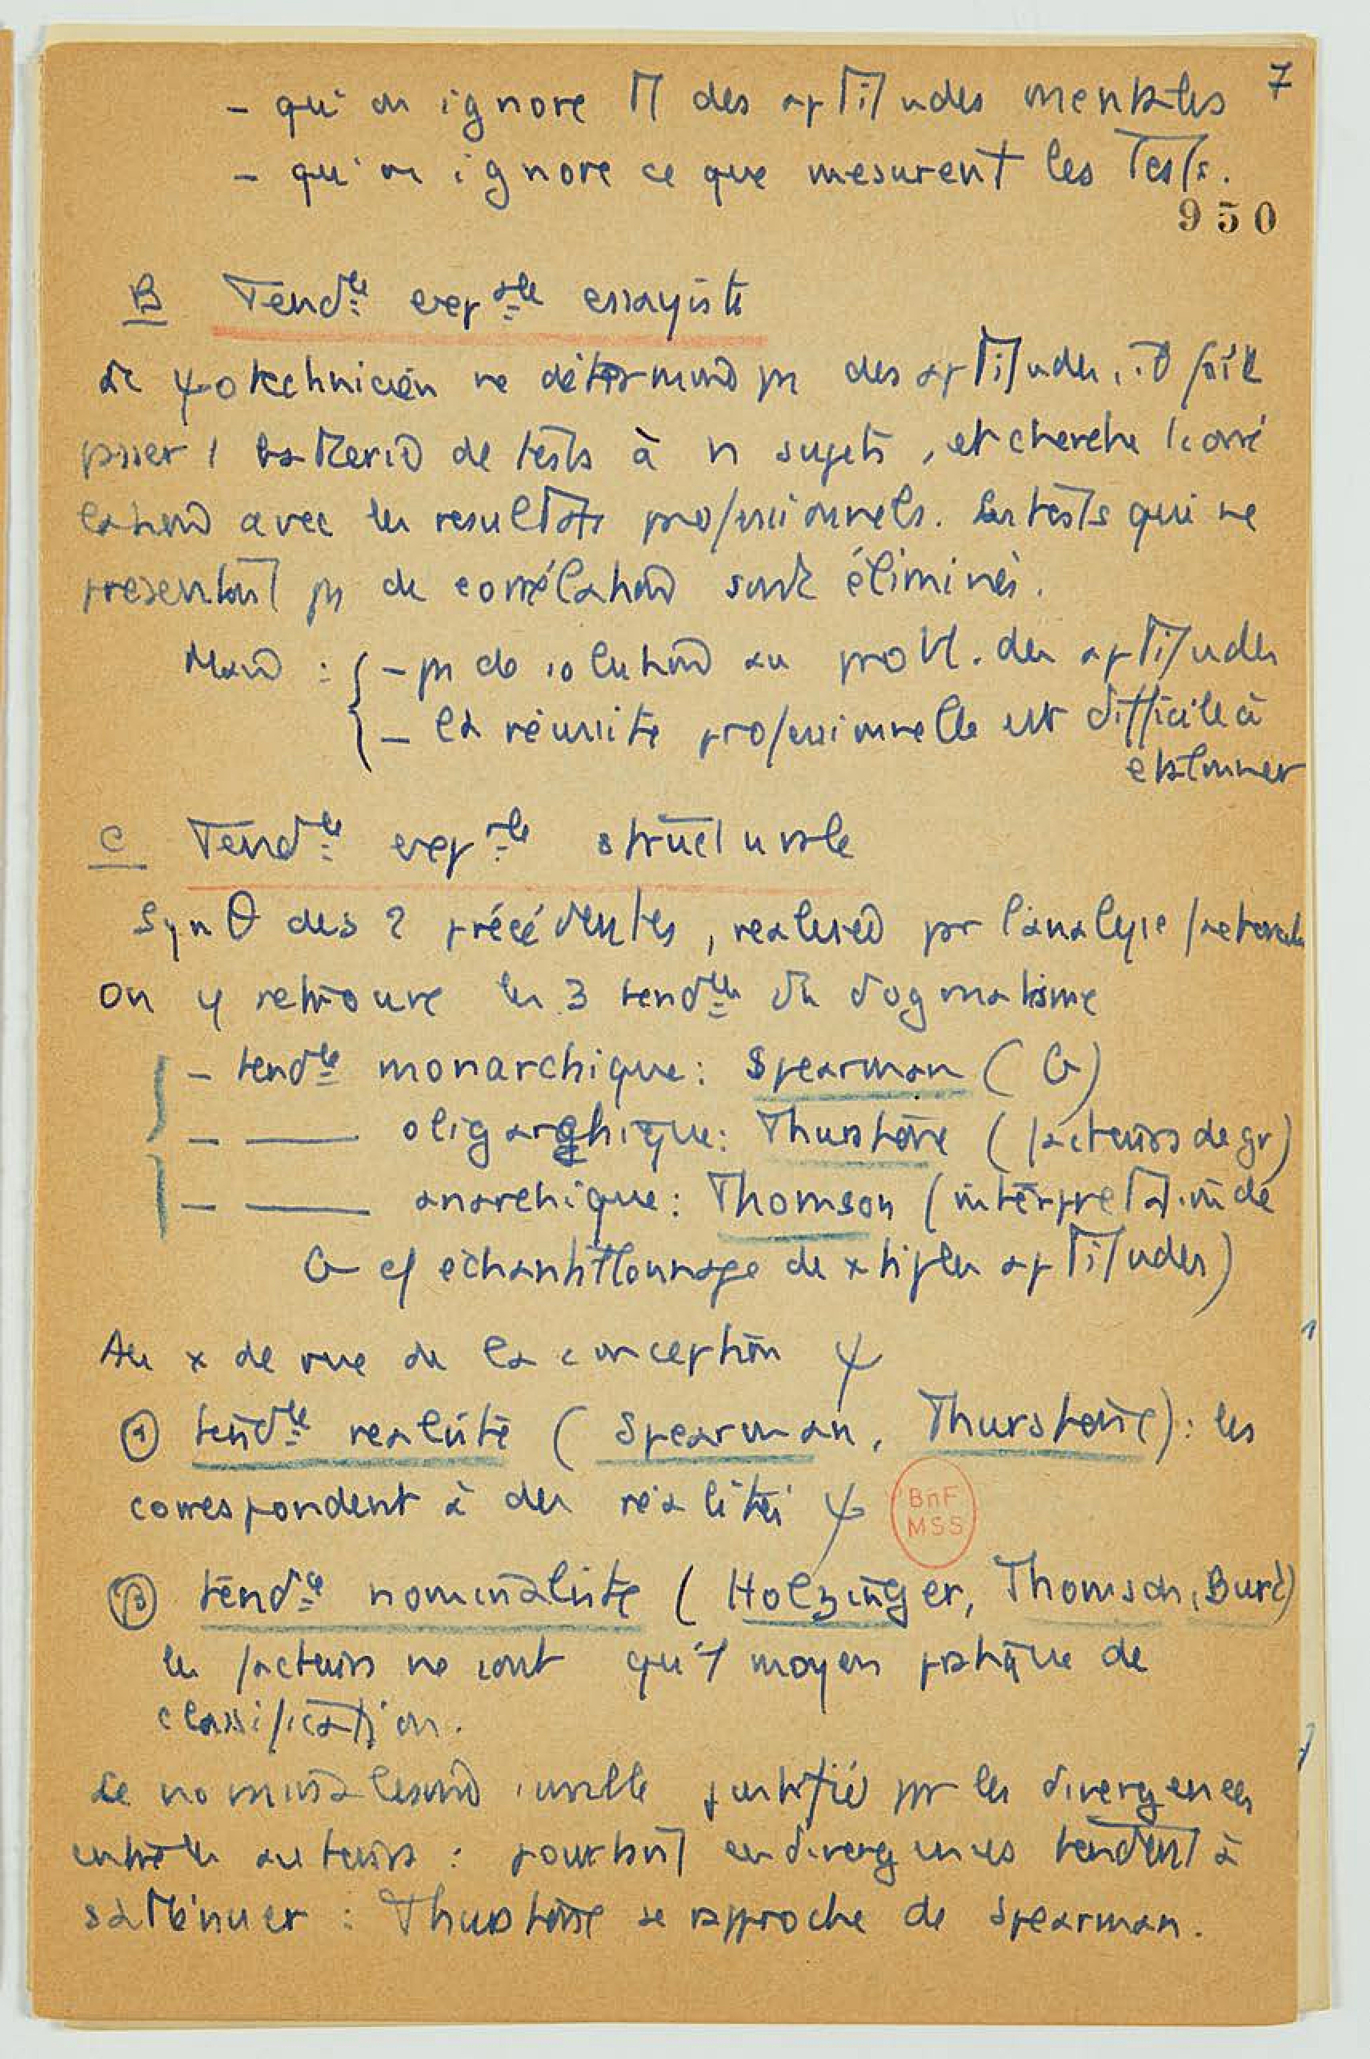 7
- qu'on ignore Π des aptitudes mentales
- qu'on ignore ce que mesurent les Tests.
950
B Tend^ce exp^ale essayiste
Le ψotechnicien ne détermine pas des aptitudes, il fait
passer 1 batterie de tests à n sujets, et cherche la corré
lation avec les resultats professionnels. Les tests qui ne
presentent pas de corrélation sont éliminés.
Mais : { - pas de solution au probl. des aptitudes
- la réussite professionnelle est difficile à
etalonner
C Tend^ce exp^ale structurale
Synθ des 2 précédentes, realisée par l'analyse factorielle
On y retrouve les 3 tend^ces du dogmatisme
- tend^ce monarchique : Spearman (G)
- —— oligarchique : Thurstone (facteurs de gr)
- —— anarchique : Thomson (interpretation de
G cf echantillonnage de xtiples aptitudes)
Au x de vue de la conception ψ
α tend^ce realiste (Spearman, Thurstone) : les
correspondent à des réalités ψ
BnF
MSS
β tend^ce nominaliste (Holzinger, Thomson, Burt)
les facteurs ne sont qu'1 moyen pratique de
classification.
Le nominalisme semble justifié par les divergences
entre les auteurs : pourtant ces divergences tendent à
s'atténuer : Thurstone se rapproche de Spearman.